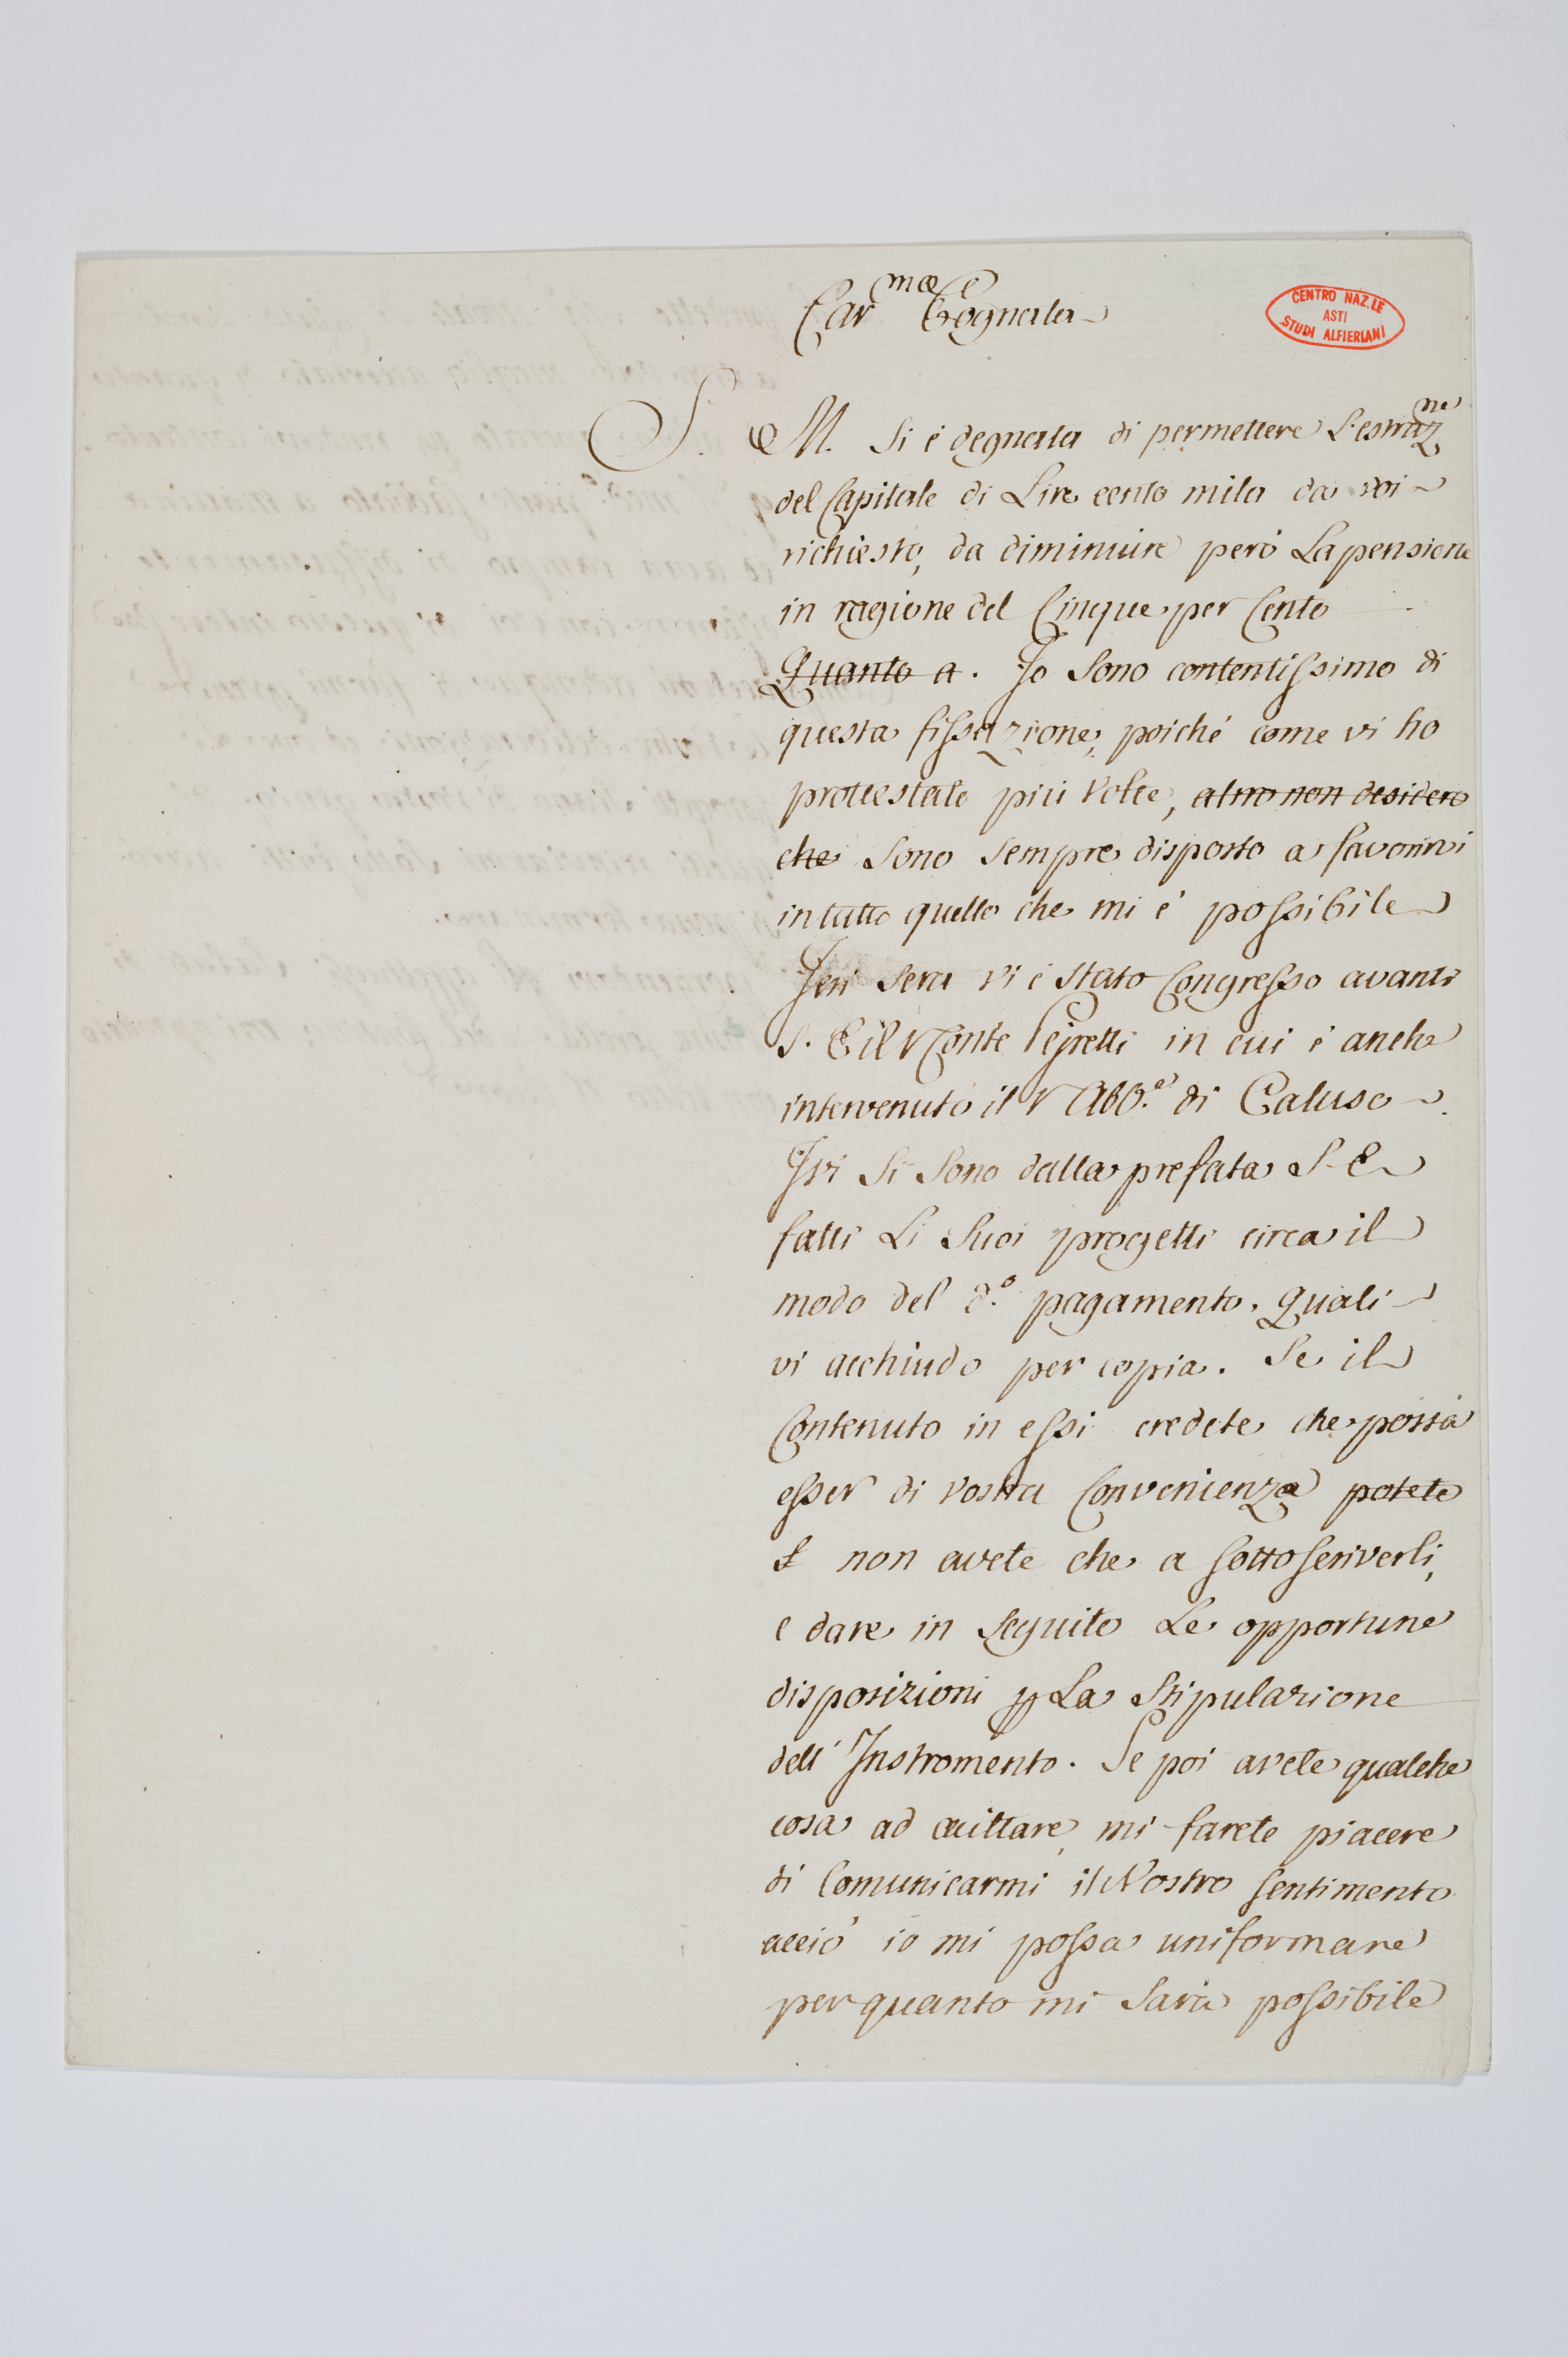 Car.ma Cognata
CENTRO NAZ.LE
ASTI
STUDI ALFIERIANI
S. M. si è degnata di permettere L'estraz.ne
del Capitale di Lire cento mila da voi
richiesto, da diminuire però La pensione
in ragione del Cinque per Cento
Quanto a. Io sono contentissimo di
questa fissazione, poiché come vi ho
protestato più volte, altro non desidero
che sono sempre disposto a favorirvi
in tutto quello che mi è possibile
Jeri sera vi è stato Congresso avanti
S. E il Conte Pejretti in cui è anche
intervenuto il Abb.e di Caluso
Ivi si sono dalla prefata S. E
fatti Li suoi progetti circa il
modo del d.o pagamento, quali
vi acchiudo per copia. Se il
Contenuto in essi credete che possa
esser di vostra Convenienza potete
non avete che a sottoscriverli,
e dare in seguito Le opportune
disposizioni p La Stipulazione
dell' Instromento. Se poi avete qualche
cosa ad eccittare, mi farete piacere
di Comunicarmi il Vostro sentimento
acciò io mi possa uniformare
per quanto mi sarà possibile